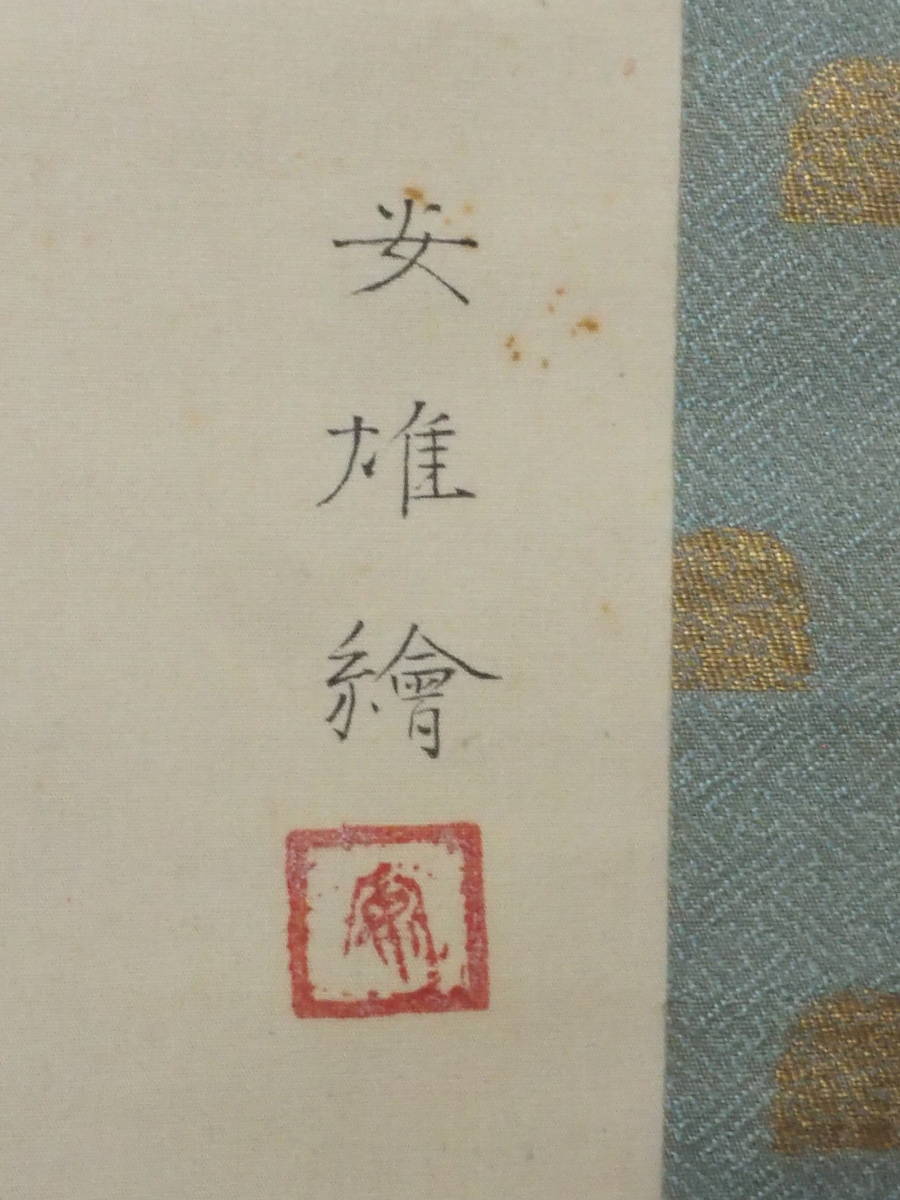 安雄繪